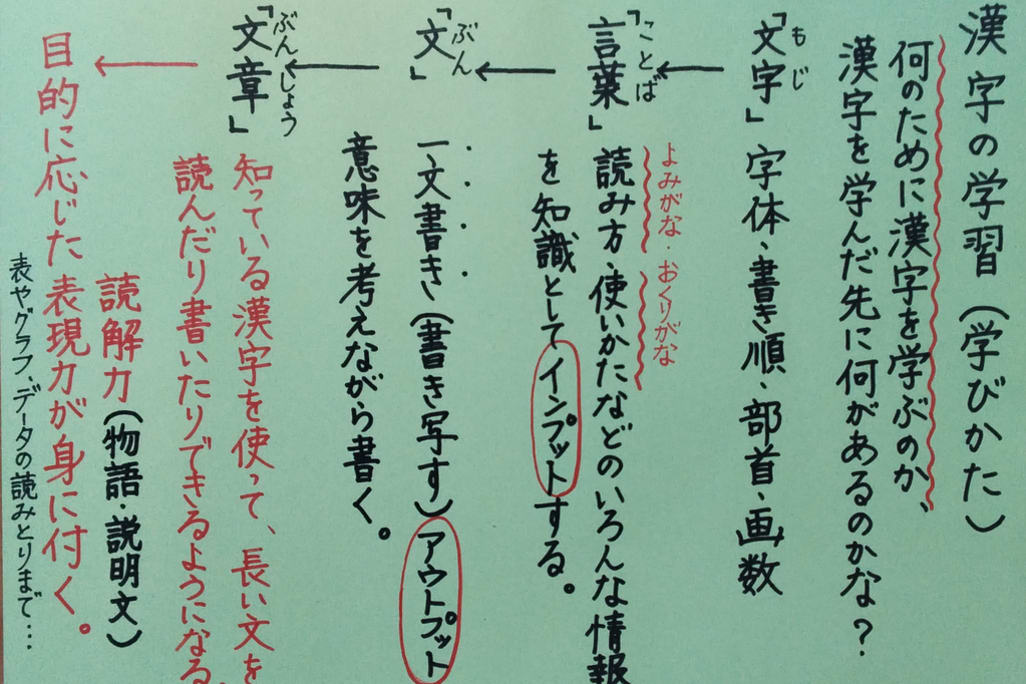 漢字の学習(学びかた)
何のために漢字を学ぶのか、
漢字を学んだ先に何があるのかな?
もじ
「文字」字体、書き順、部首、画数
よみがな・おくりがな
ことば
「言葉」読み方・使いかたなどのいろんな情報
を知識としてインプットする。
ぶん
「文」一文書き(書き写す)アウトプット
意味を考えながら書く。
ぶんしょう
「文章」知っている漢字を使って、長い文を
読んだり書いたりできるようになる。
読解力(物語・説明文)
目的に応じた表現力が身に付く。
表やグラフ、データの読みとりまで…